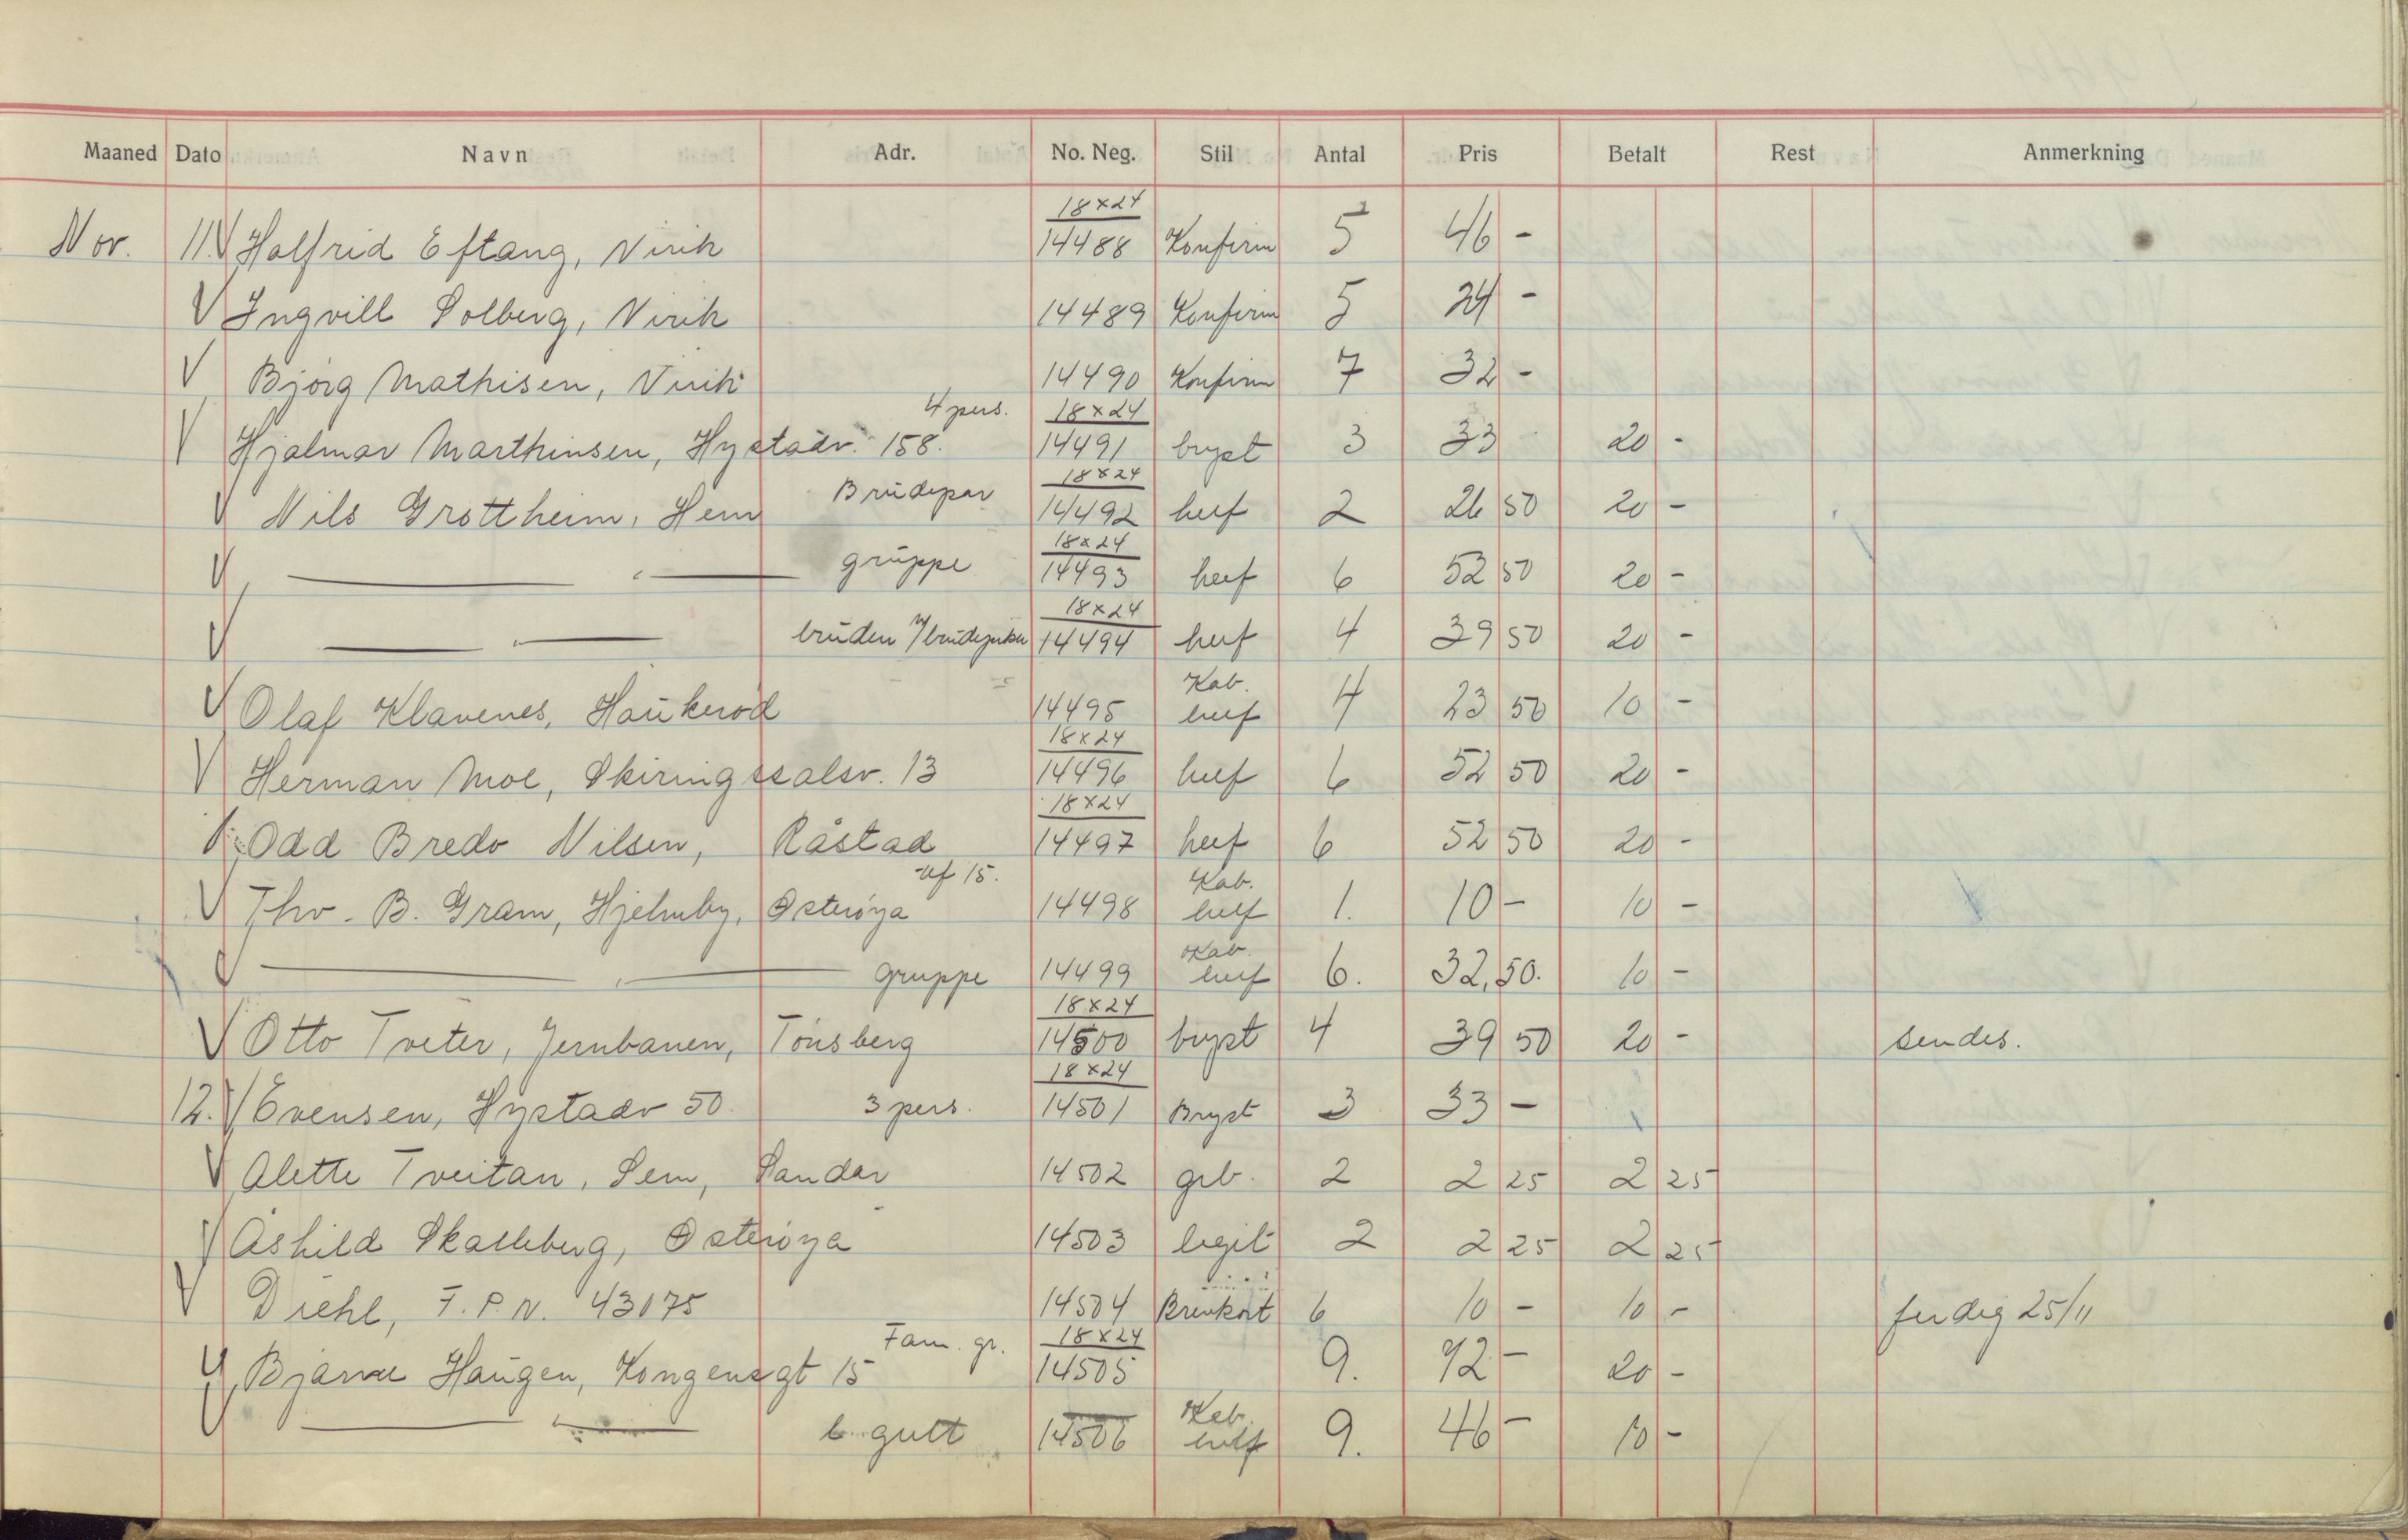 Maaned Dato Navn Adr. No. Neg. Stil Antal Pris Betalt Rest Anmerkning
Nov. 11. V Halfrid Eftang, Virik 18x24 14488 Konfirm 5 46 -
V Ingvill Solberg, Virik 14489 Konfirm 5 24 -
V Bjørg Mathisen, Virik 14490 Konfirm 7 32 -
V Hjalmar Marthinsen, Hystadv. 158. 4 pers. 18x24 14491 bryst 3 33 20 -
V Nils Grøttheim, Hem Brudepar 18x24 14492 helf 2 26 50 20 -
V — " — gruppe 18x24 14493 helf 6 52 50 20 -
V — " — bruden m/ brudepiker 18x24 14494 helf 4 39 50 20 -
V Olaf Klavenes, Haukerød 14495 Kab. helf 4 23 50 10 -
V Herman Moe, Skiringssalsv. 13 18x24 14496 helf 6 52 50 20 -
V Odd Bredo Nilsen, Råstad 18x24 14497 helf 6 52 50 20 -
V Thv. B. Gram, Hjelmby, Østerøya 15. 14498 Kab. helf 1. 10 - 10 -
V — " — gruppe 14499 Kab. helf 6. 32,50. 10 -
V Otto Tveter, Jernbanen, Tønsberg 18x24 14500 bryst 4 39 50 20 - sendes.
12. V Evensen, Hystadv 50. 3 pers. 18x24 14501 Bryst 3 33 -
V Alette Tveitan, Sem, Sandar 14502 geb. 2 2 25 2 25
V Åshild Skalleberg, Østerøya 14503 legit 2 2 25 2 25
V Diehl, F.P.N. 43075 14504 Brevkort 6 10 - 10 - ferdig 25/11
V Bjarne Haugen, Kongensgt 15 Fam. gr. 18x24 14505 9. 92 - 20 -
V — " — gutt 14506 Kab. helf 9. 46 - 10 -